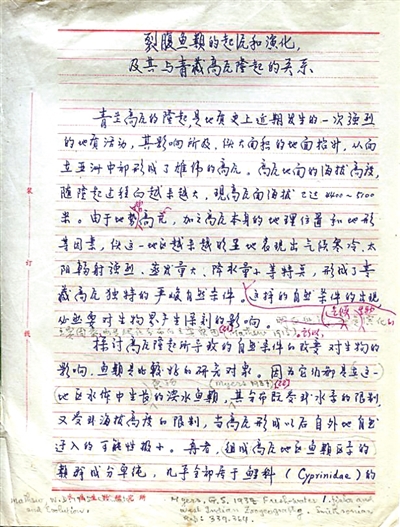 裂腹鱼类的起沅和演化,
及其与青藏高沅隆起的关系
青兰高沅的隆起,是地质史上近期发生的一次强烈
的地质活动,其影响所及,使大面积的地面抬升,从而
在亚洲中部形成了雄伟的高沅。高沅地面的海拔高度,
随隆起过程向越来越大,现高沅面海拔已达4400—5100
米。由于地势高亢,加之高沅本身的地理位置和地形
等因素,使这一地区越来越明显地表现出气候寒冷、太
阳辐射强烈、蒸发量大、降水量小等特点,形成了青
藏高沅独特的严峻自然条件,这样的自然条件的出现
必然要对生物界产生深刻的影响
探讨高沅隆起所导致的自然条件的改变对生物的
影响,鱼类是比较好的研究对象。因为它们都是在这一
地区水体中生长的淡水鱼类,其分布既受到水系的限制,
又受到海拔高度的限制,当高沅形成以后自外地自然
进入的可能性极小。再者,组成高沅地区鱼类区系的
类群成分单纯,几乎全部属于鲤科(Cyprinidae)的
(Myers 1938)
装
订
线
Matthew, W.D.
and Evolution.
Myers, G.S. 1938 Freshwater fishes and
West Indian Zoogeography. Smithsonian
Rep: 339-364.